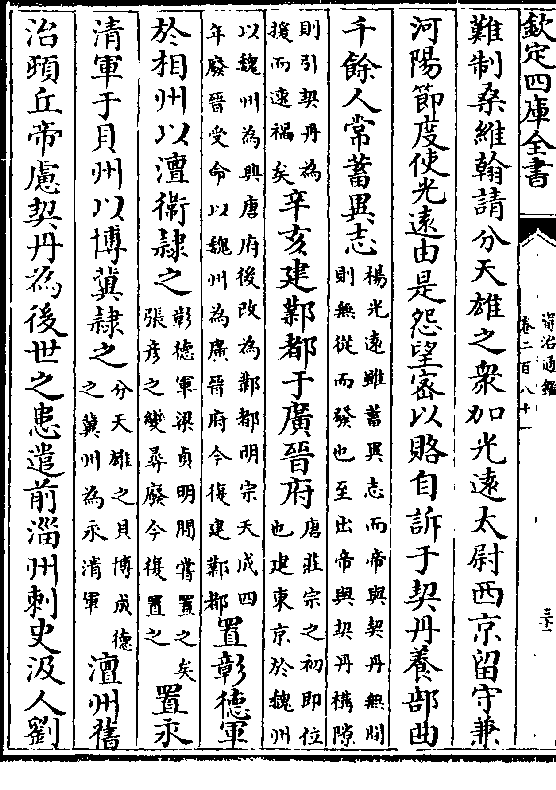 欽定四庫全書
資治通鑑
卷二百八十一
難制桑維翰請分天雄之衆加光遠太尉西京留守兼
河陽節度使光遠由是怨望密以賂自訴于契丹養部曲
千餘人常蓄異志楊光遠雖蓄異志而帝與契丹無間
則無從而發也至出帝與契丹構隙
則引契丹為
援而速禍矣辛亥建鄴都于廣晉府唐莊宗之初即位
也建東京於魏州
以魏州為興唐府後改為鄴都明宗天成四
年廢晉受命以魏州為廣晉府今復建鄴都置彰德軍
於相州以澶衛隸之彰德軍梁貞明間嘗置之矣
張彥之變尋廢今復置之置永
清軍于貝州以博冀隸之分天雄之貝博成德
之冀州為永清軍澶州舊
治頓丘帝慮契丹為後世之患遣前淄州刺史汲人劉